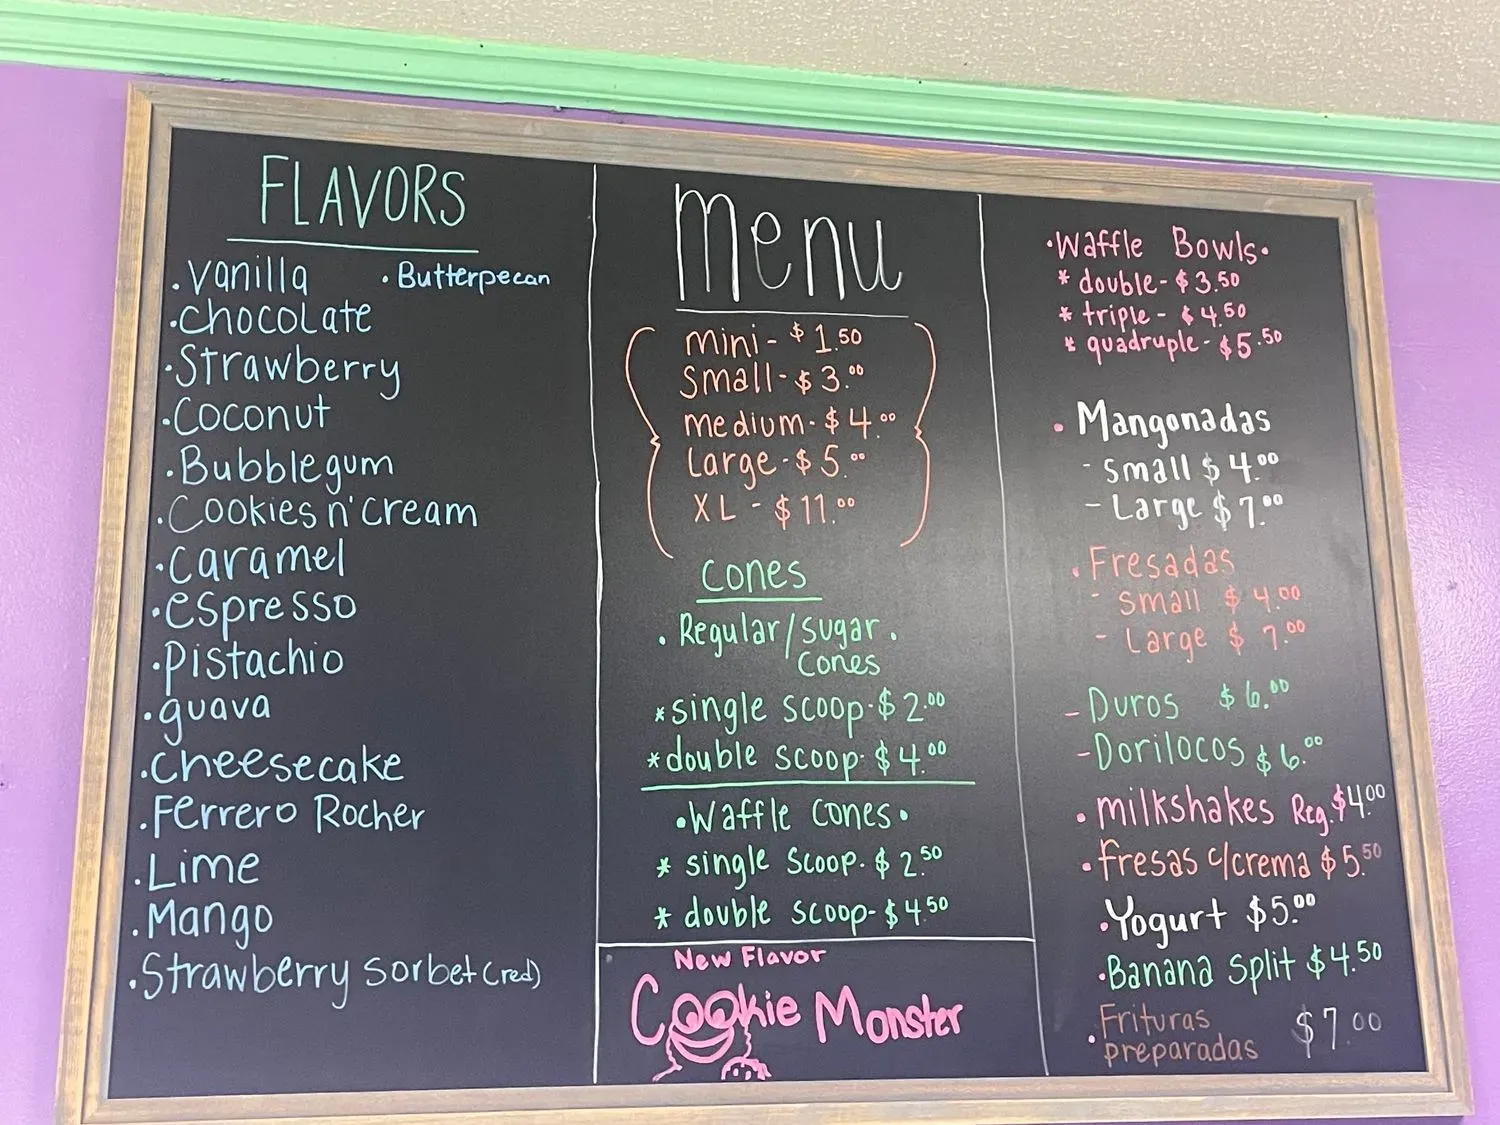 FLAVORS
.vanilla
.Butterpecan
.chocolate
.Strawberry
.Coconut
.Bubblegum
.Cookies n' cream
.caramel
.espresso
.pistachio
.guava
.cheesecake
.Ferrero Rocher
.Lime
.Mango
.Strawberry sorbet (red)
menu
mini - $1.50
Small - $3.00
medium - $4.00
Large - $5.00
XL - $11.00
cones
. Regular/sugar .
cones
*single scoop - $2.00
*double scoop - $4.00
•Waffle cones•
* single Scoop - $2.50
* double scoop - $4.50
New Flavor
Cookie Monster
•Waffle Bowls•
* double - $3.50
* triple - $4.50
* quadruple - $5.50
• Mangonadas
- small $4.00
- Large $7.00
. Fresadas
- small $4.00
- Large $7.00
- Duros $6.00
- Dorilocos $6.00
• milkshakes Reg. $4.00
• fresas c/crema $5.50
•Yogurt $5.00
•Banana split $4.50
. Frituras
preparadas $7.00